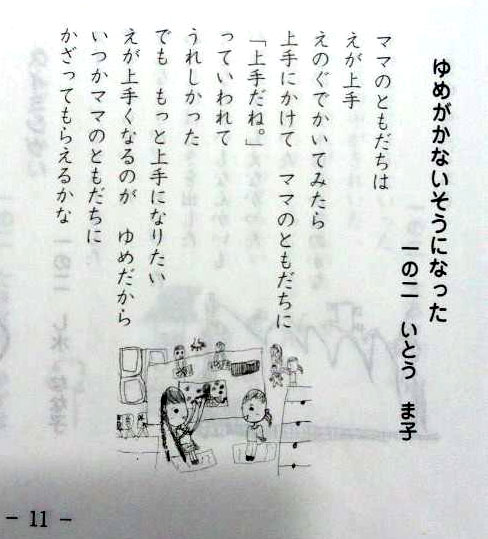 ゆめがかないそうになった
一の二 いとう ま子
ママのともだちは
えが上手
えのぐでかいてみたら
上手にかけて ママのともだちに
「上手だね。」
っていわれて
うれしかった
でも もっと上手になりたい
えが上手くなるのが ゆめだから
いつかママのともだちに
かざってもらえるかな
- 11 -